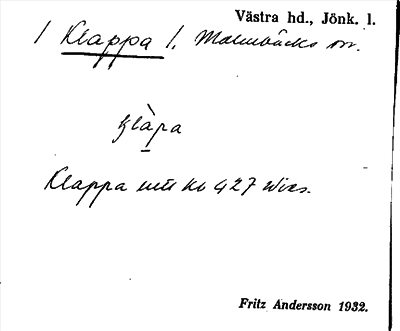 Västra hd., Jönk. l.
/ Klappa /, Malmbäcks sn.
klàpa
Klappa
Fritz Andersson 1932.